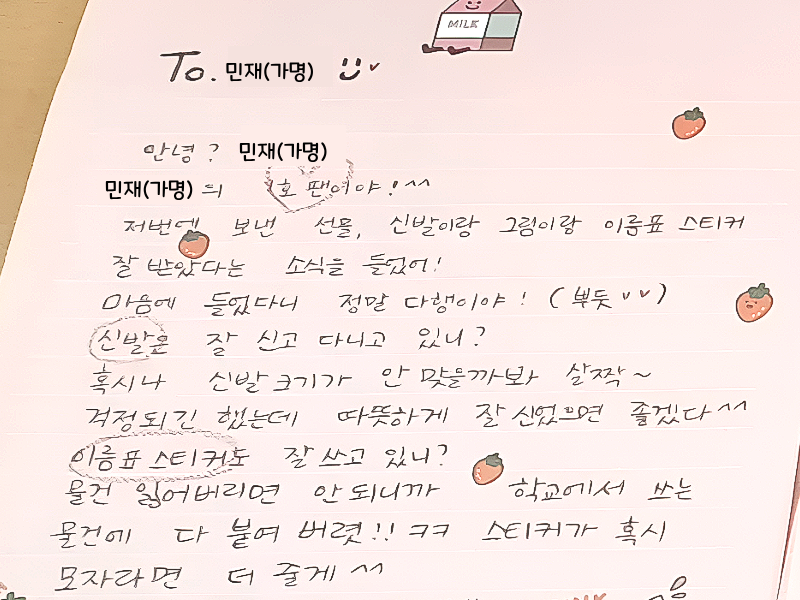 MILK
To. 민재(가명)
안녕? 민재(가명)
민재(가명)의 1호 팬이야!^^
저번에 보낸 선물, 신발이랑 그림이랑 이름표 스티커
잘 받았다는 소식을 들었어!
마음에 들었다니 정말 다행이야! (뿌듯 ♥♥)
신발은 잘 신고 다니고 있니?
혹시나 신발 크기가 안 맞을까봐 살짝~
걱정되긴 했는데 따뜻하게 잘 신었으면 좋겠다^^
이름표 스티커도 잘 쓰고 있니?
물건 잃어버리면 안 되니까 학교에서 쓰는
물건에 다 붙여 버렷!! ㅋㅋ 스티커가 혹시
모자라면 더 줄게^^